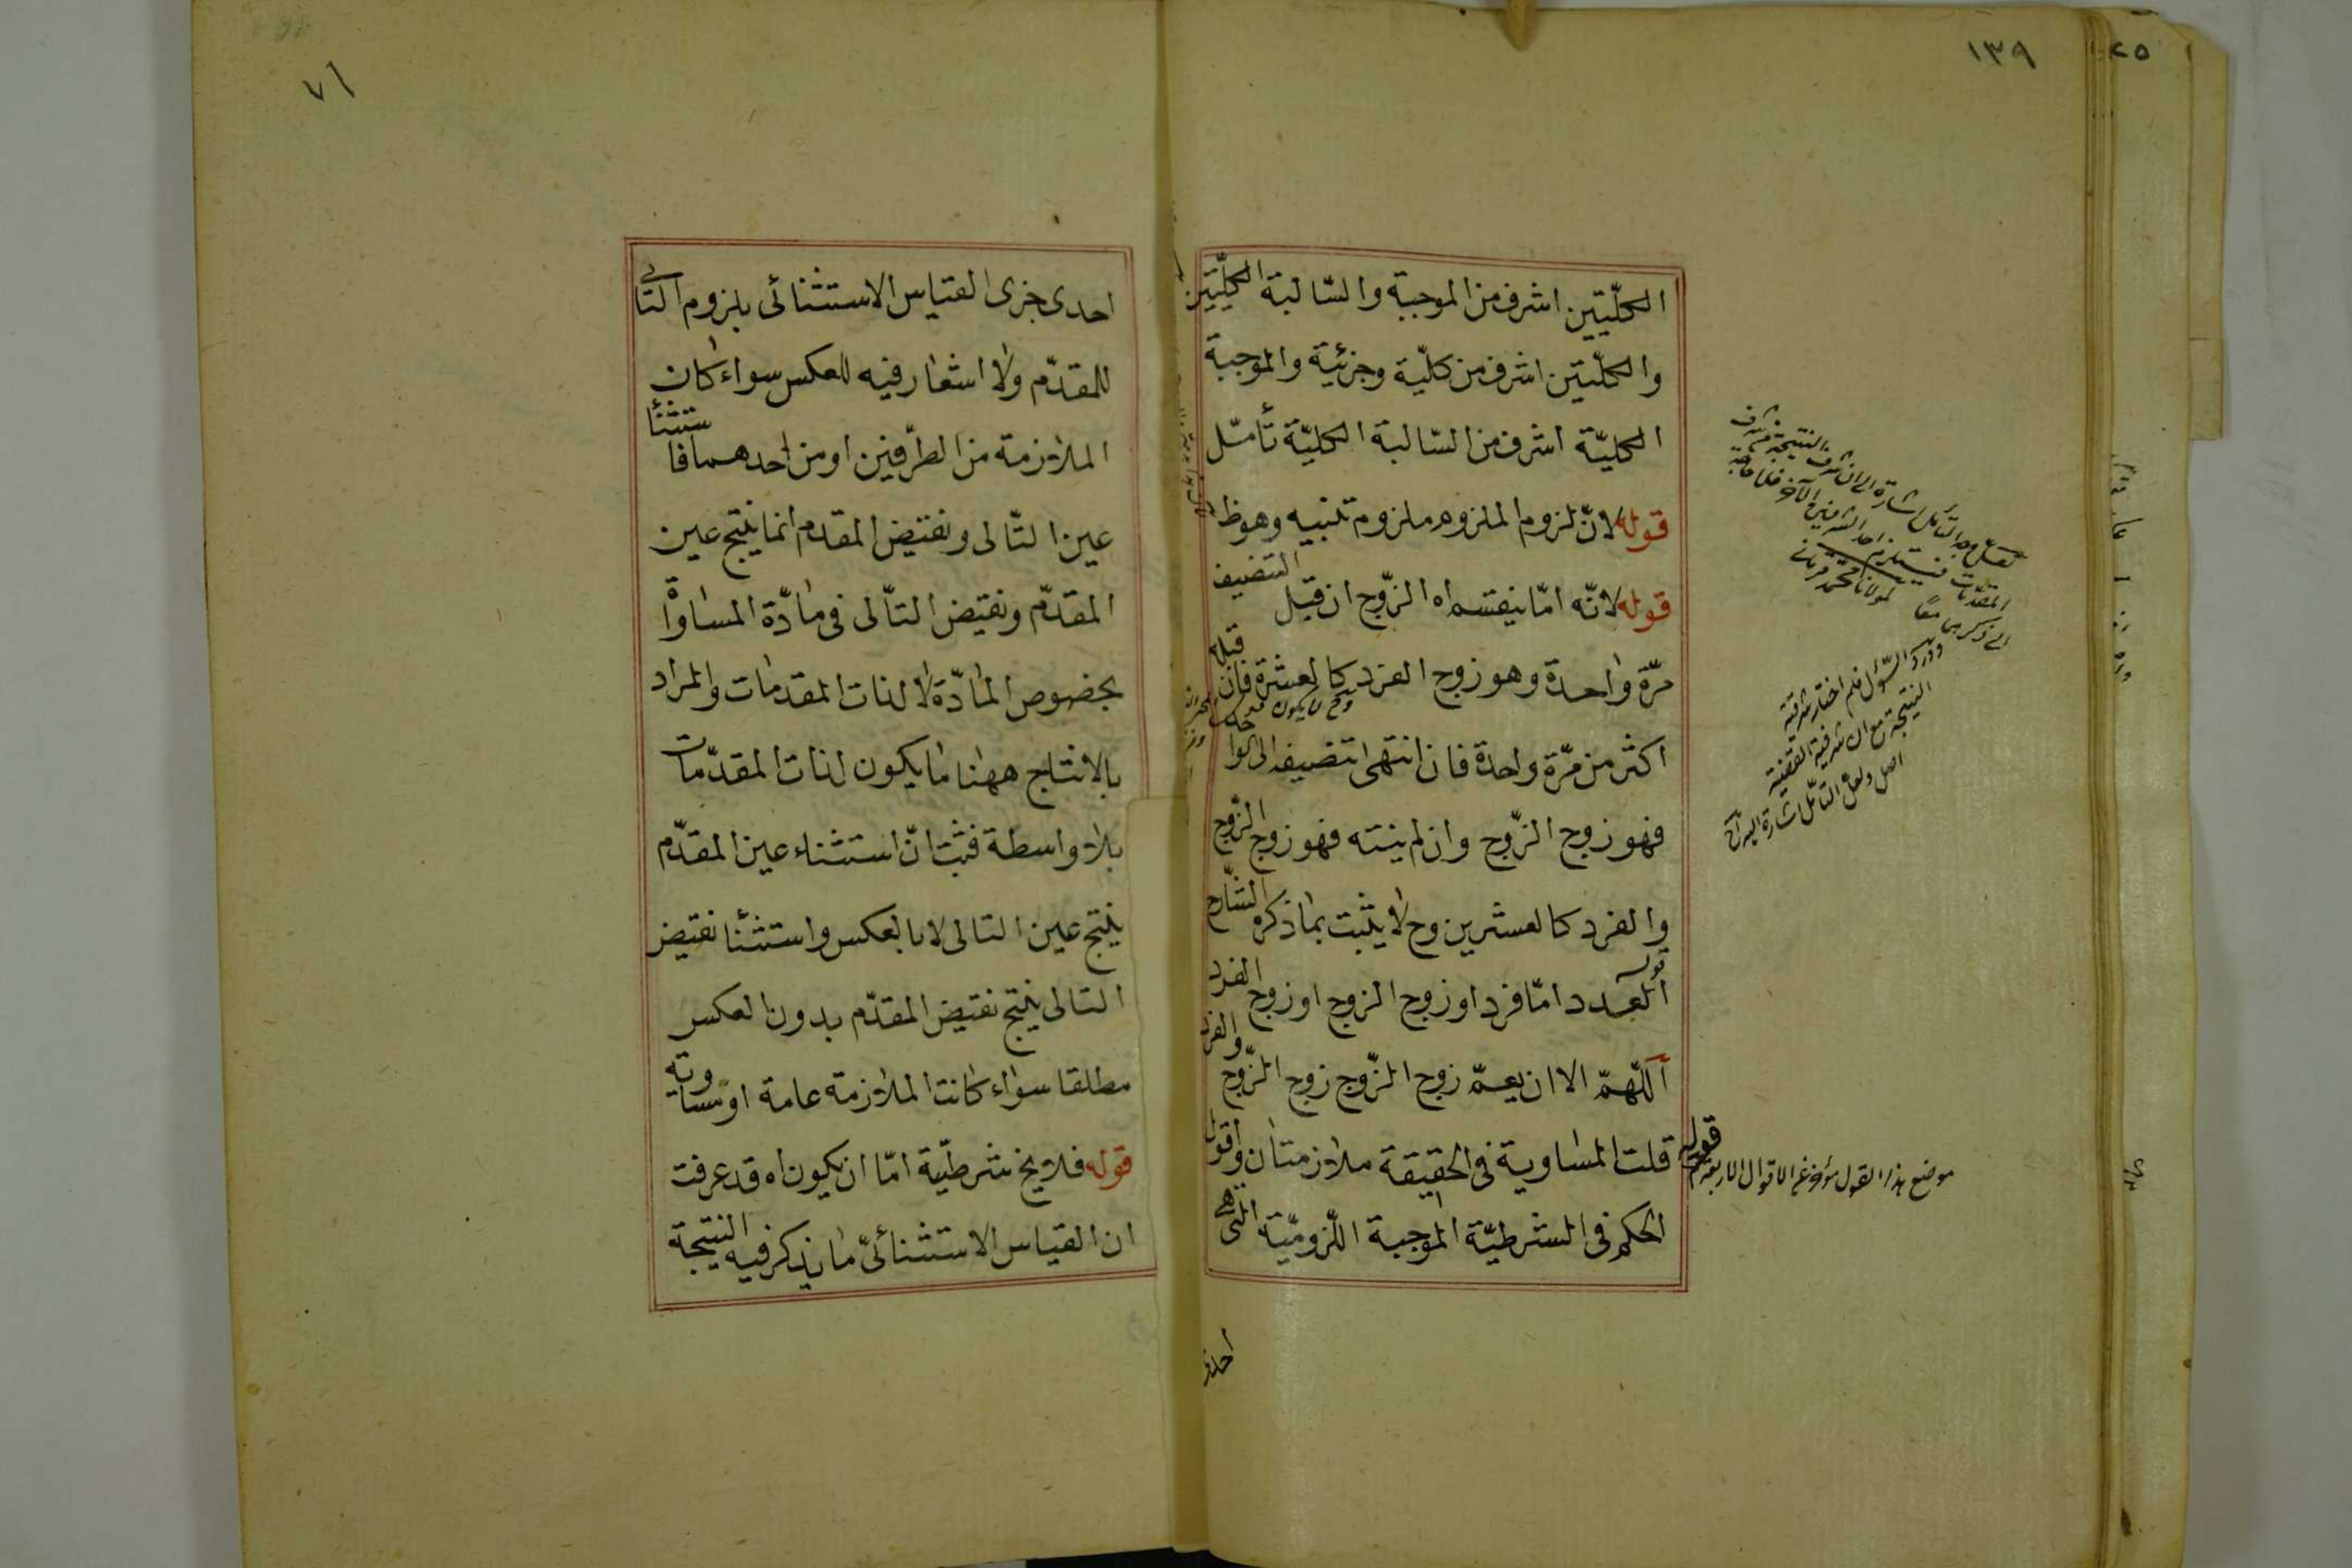 ١٣٩
الكلّيتين اشرف من الموجبة والسّالبة الكليّتين
والكلّيتين اشرف من كلّية وجزئية والموجبة
الكليّة اشرف من السّالبة الكليّة تأمّل
قوله لانّ لزوم الملزوم ملزوم تنبيه وهو ظ
قوله لانّه امّا ينقسم اه الزّوج ان قبل التنصيف
مرّة واحدة وهو زوج الفرد كالعشرة فان قبله
اكثر من مرّة واحدة فان انتهى تنصيفه الى الوا
فهو زوج الزّوج وان لم ينته فهو زوج الزّوج
والفرد كالعشرين وح لا يثبت بما ذكره الشّارح
العدد امّا فرد او زوج الزوج او زوج الفرد
اللّهمّ الا ان يعمّ زوج الزّوج زوج الزّوج والفرد
قوله قلت المساوية فى الحقيقة ملازمتان واقول
الحكم فى الشرطيّة الموجبة اللّزوميّة التى هى
احدى
موضع هذا القول مؤخر عن الاقوال الاربعة
ورد السّؤال فلم اختار شرفية
النتيجة مع ان شرفية القضية
اصل ولعل التأمّل اشارة اليه
٧٦
احدى جزئى القياس الاستثنائى بلزوم التالى
للمقدّم ولا اشعار فيه للعكس سواء كان
الملازمة من الطّرفين او من احدهما فاستثنا
عين التّالى ونقيض المقدم انما ينتج عين
المقدّم ونقيض التّالى فى مادّة المساواة
بخصوص المادّة لا لذات المقدمات والمراد
بالانتاج ههنا ما يكون لذات المقدّمات
بلا واسطة فثبت انّ استثناء عين المقدّم
ينتج عين التالى لا بالعكس واستثنا نقيض
التالى ينتج نقيض المقدّم بدون العكس
مطلقا سواء كانت الملازمة عامة او مساوية
قوله فلا يخ شرطيّة امّا ان يكون اه قد عرفت
ان القياس الاستثنائىّ ما يذكر فيه النتيجة